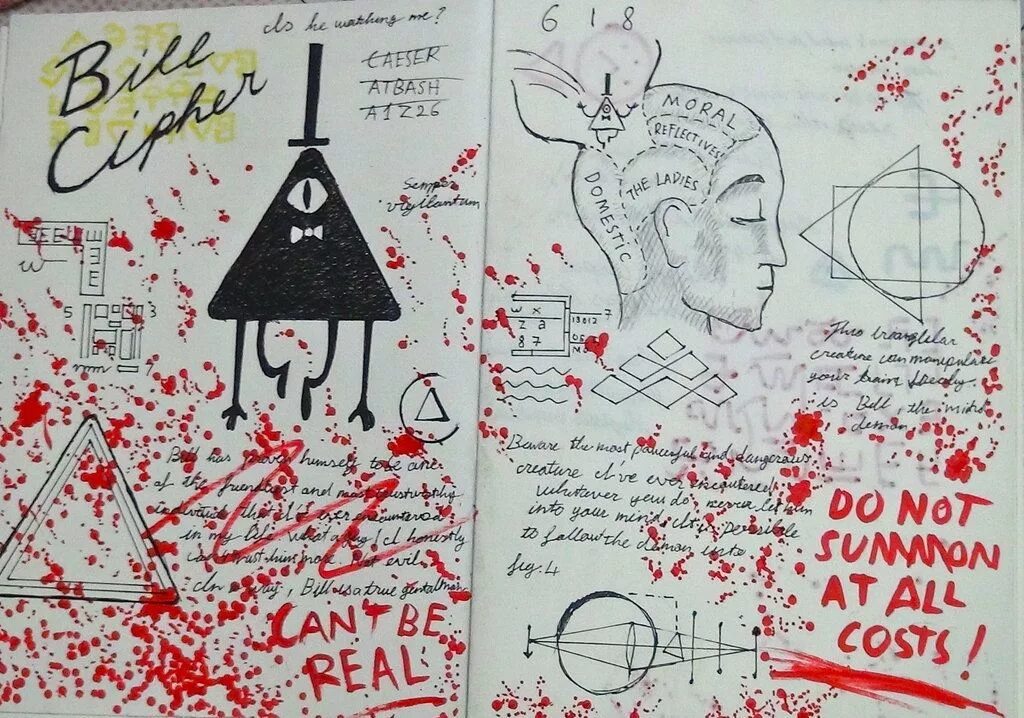 Bill
Cipher
Is he watching me?
CAESER
ATBASH
A1Z26
Semper
vigilantum
5 3
7
Bill has himself to be one
of the friendliest and most trustworthy
individuals that I've ever encountered
in my life. What a guy! I honestly
can't trust him more. Not evil
In a way, Bill is a true gentalman
CAN'T BE
REAL
6 1 8
MORAL
REFLECTIVES
THE LADIES
DOMESTIC
w x
z a
8 7
7
This
creature can manipulate
your
is Bill, the
demon.
Beware the most and dangerous
creature I've ever
whatever you do, never let him
into your mind. It is
to follow the demon into
fig. 4
DO NOT
SUMMON
AT ALL
COSTS!